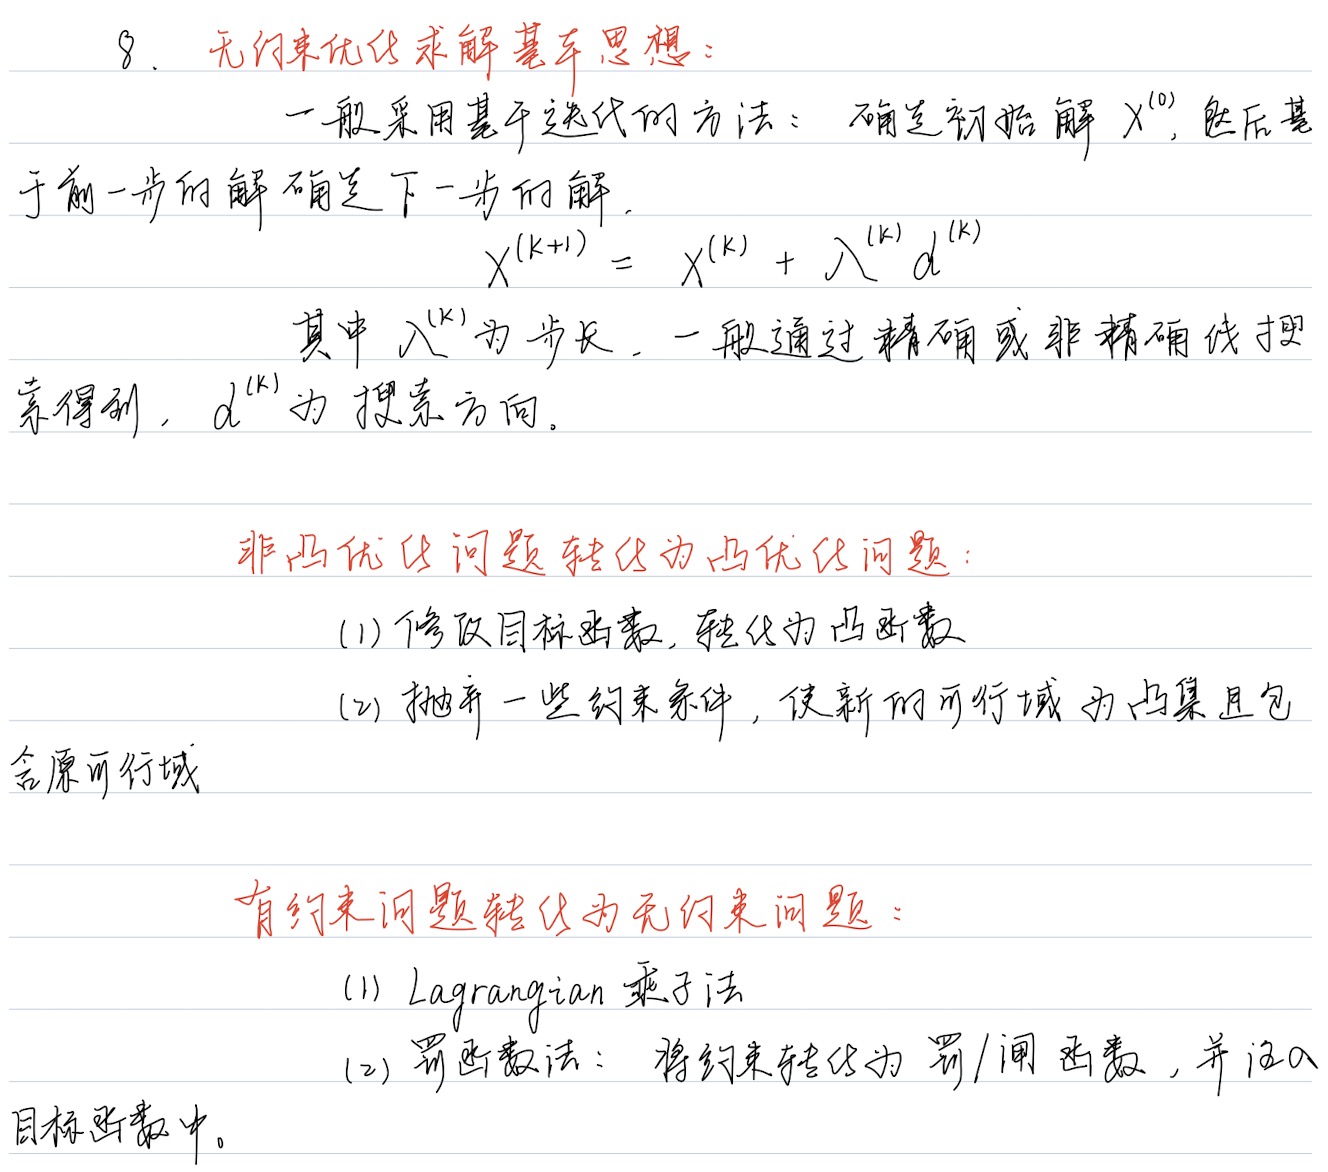 8. 无约束优化求解基本思想：
一般采用基于迭代的方法： 确定初始解 X^(0), 然后基
于前一步的解确定下一步的解.
X^(k+1) = X^(k) + λ^(k) d^(k)
其中 λ^(k) 为步长, 一般通过精确或非精确线搜
索得到, d^(k) 为搜索方向。
非凸优化问题转化为凸优化问题：
(1) 修改目标函数, 转化为凸函数
(2) 抛弃一些约束条件, 使新的可行域为凸集且包
含原可行域
有约束问题转化为无约束问题：
(1) Lagrangian 乘子法
(2) 罚函数法： 将约束转化为 罚/闸 函数, 并注入
目标函数中。